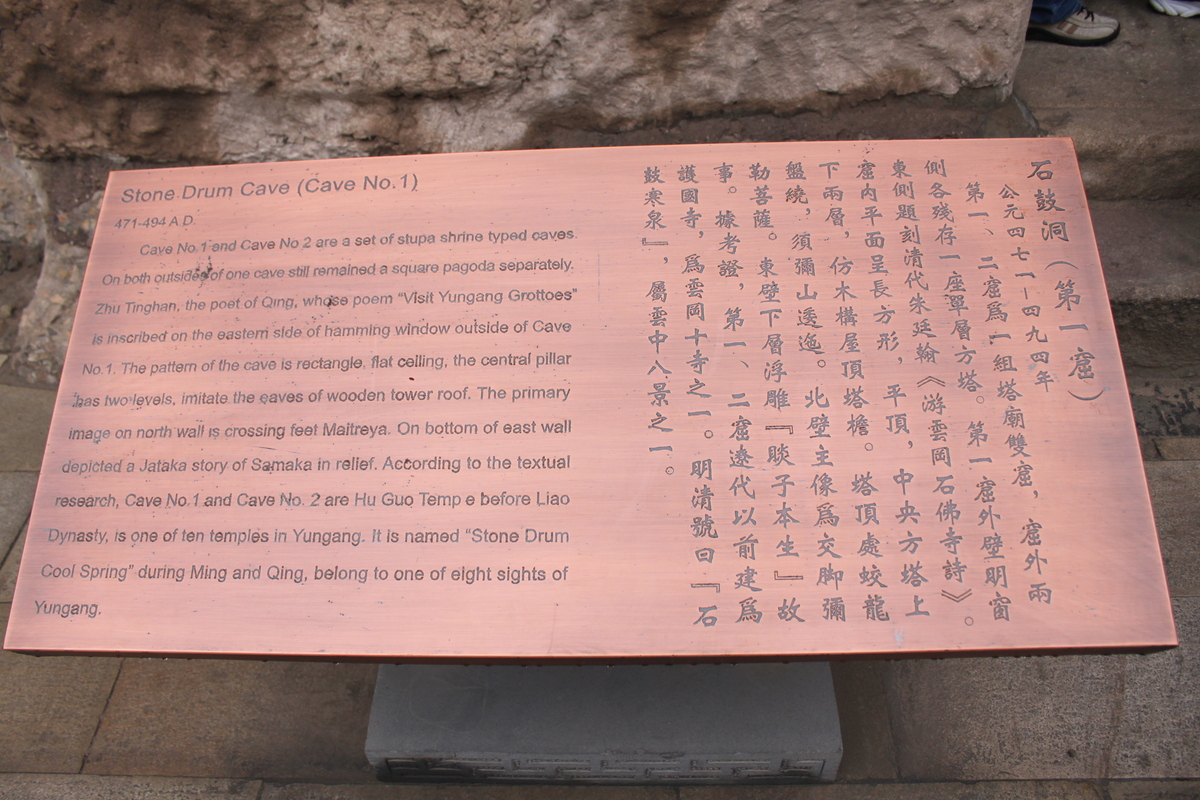 Stone Drum Cave (Cave No.1)
471-494 A.D.
Cave No.1 and Cave No 2 are a set of stupa shrine typed caves.
On both outsides of one cave still remained a square pagoda separately.
Zhu Tinghan, the poet of Qing, whose poem “Visit Yungang Grottoes”
is inscribed on the eastern side of hamming window outside of Cave
No.1. The pattern of the cave is rectangle, flat ceiling, the central pillar
has two levels, imitate the eaves of wooden tower roof. The primary
image on north wall is crossing feet Maitreya. On bottom of east wall
depicted a Jataka story of Samaka in relief. According to the textual
research, Cave No.1 and Cave No. 2 are Hu Guo Temp e before Liao
Dynasty, is one of ten temples in Yungang. It is named “Stone Drum
Cool Spring” during Ming and Qing, belong to one of eight sights of
Yungang.
石鼓洞（第一窟）
公元四七一－四九四年
第一、二窟爲一組塔廟雙窟，窟外兩
側各殘存一座單層方塔。第一窟外壁明窗
東側題刻清代朱廷翰《游雲岡石佛寺詩》。
窟内平面呈長方形，平頂，中央方塔上
下兩層，仿木構屋頂塔檐。塔頂處蛟龍
盤繞，須彌山透迤。北壁主像爲交脚彌
勒菩薩。東壁下層浮雕『睒子本生』故
事。據考證，第一、二窟遼代以前建爲
護國寺，爲雲岡十寺之一。明清號曰『石
鼓寒泉』，屬雲中八景之一。